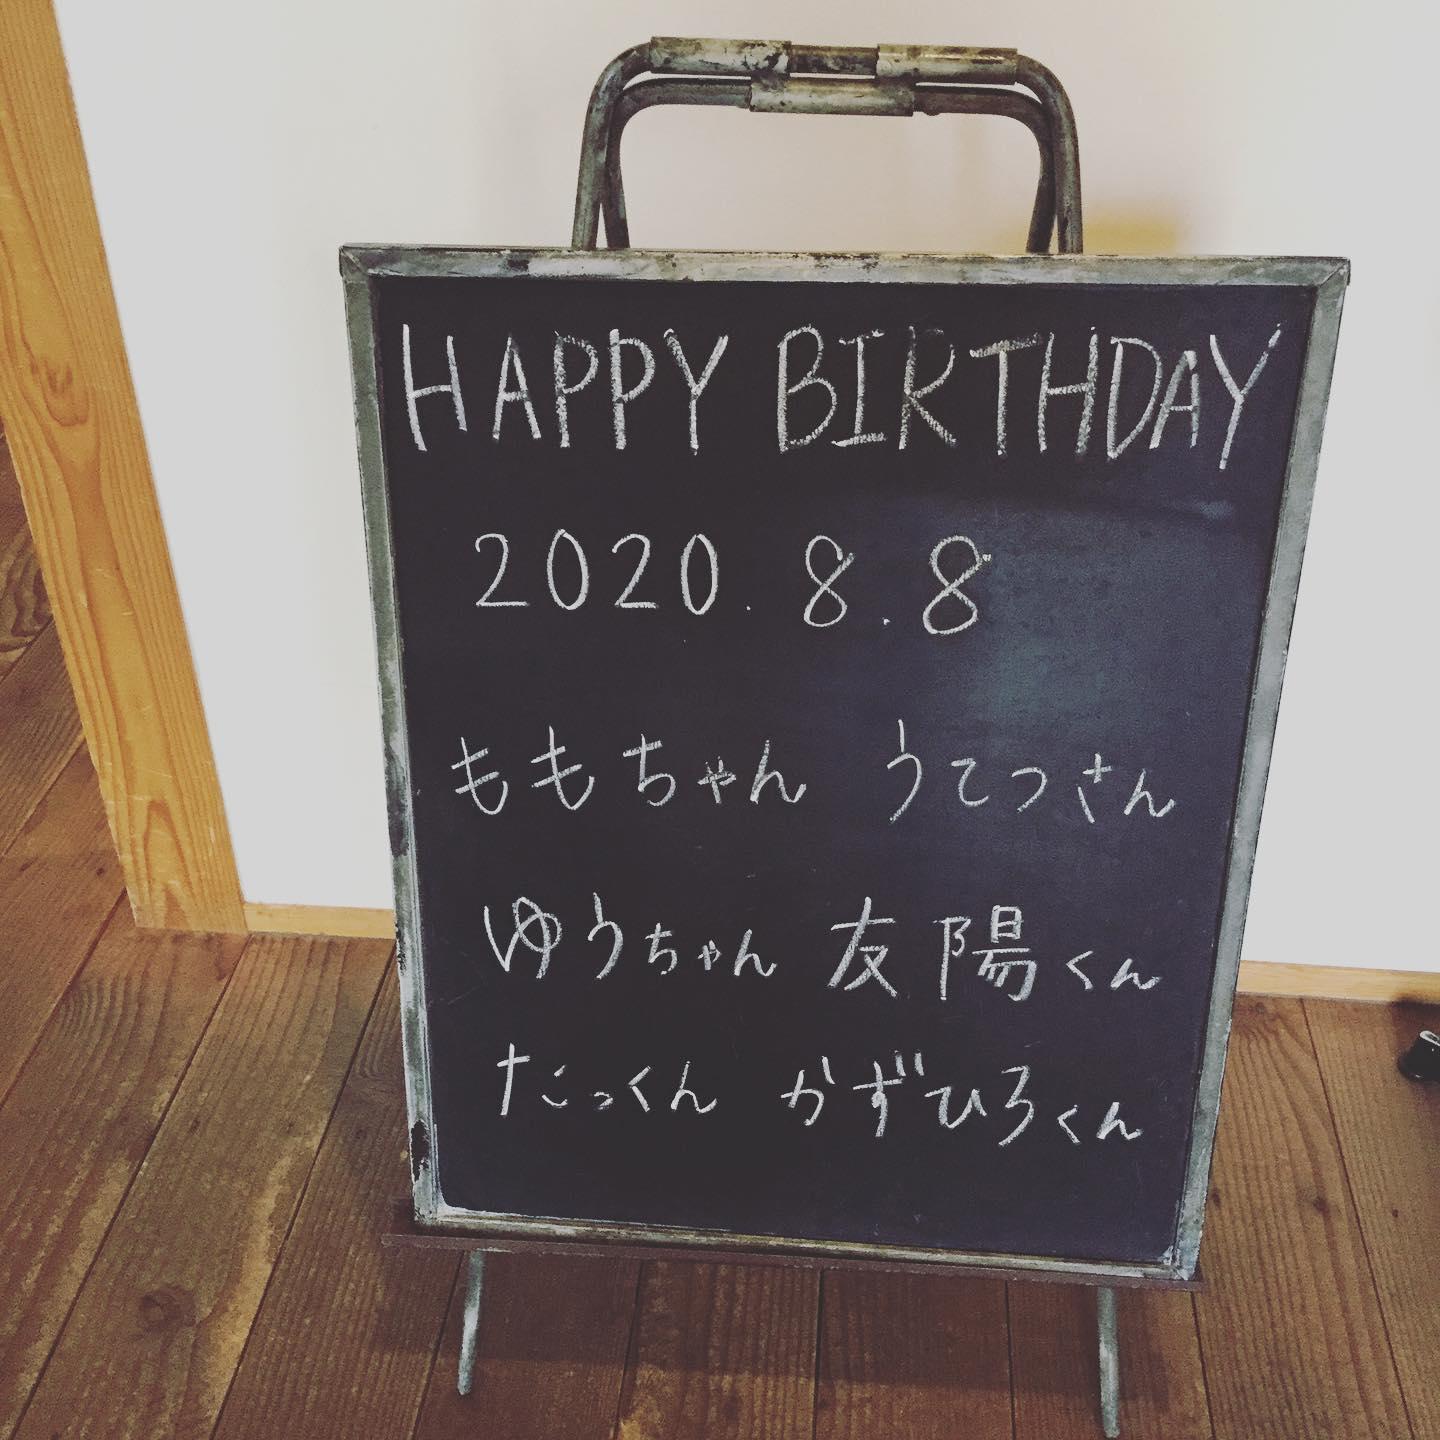 HAPPY BIRTHDAY
2020.8.8
ももちゃん うてつさん
ゆうちゃん 友陽くん
たっくん かずひろくん